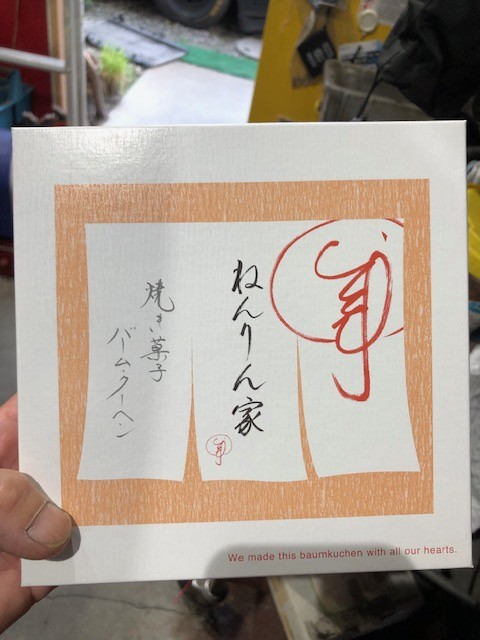 ねんりん家
焼き菓子
バーム・クーヘン
We made this baumkuchen with all our hearts.